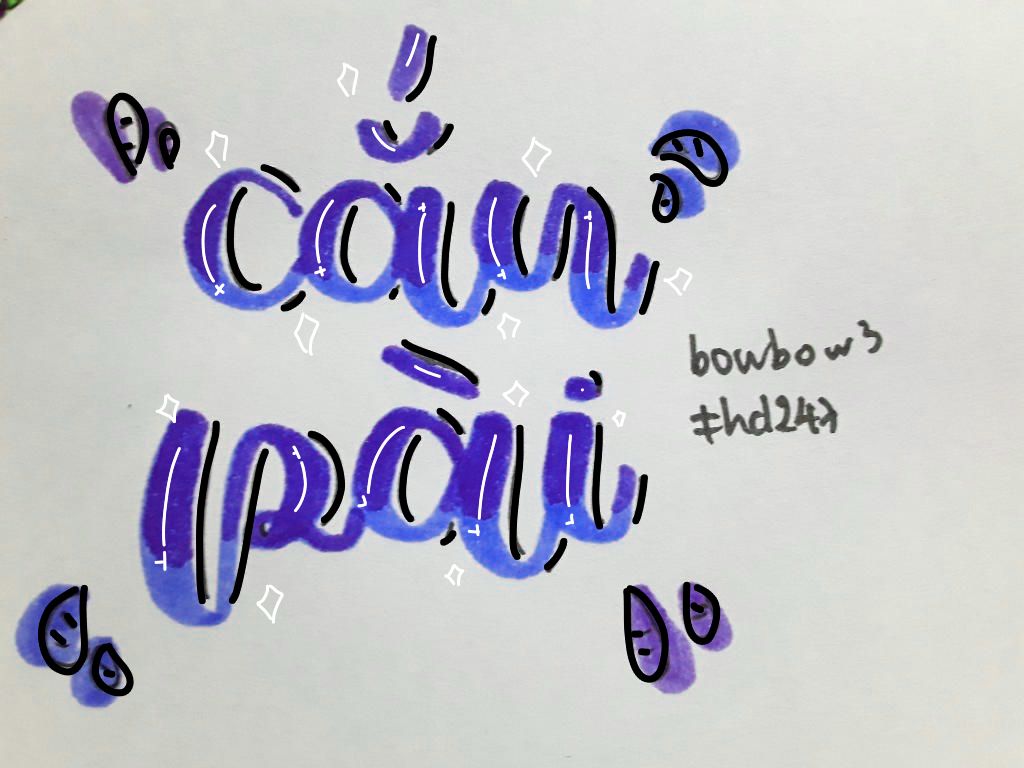 cắn
pài
bowbow3
#hd247